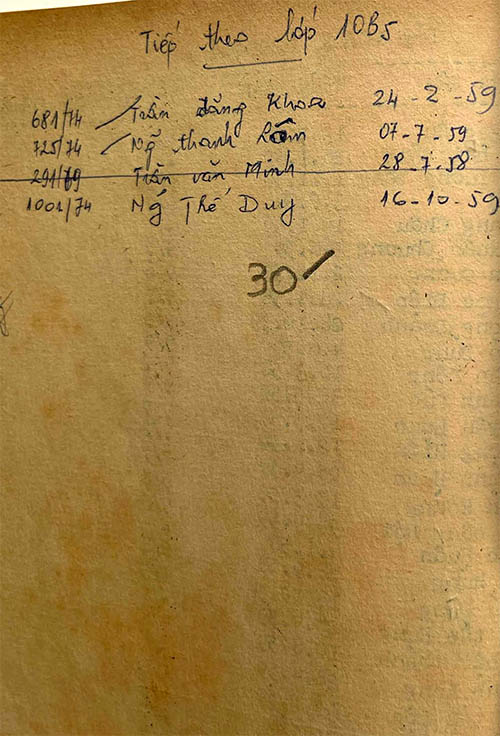 Tiếp theo lớp 10B5
681/74 Trần đăng Khoa 24-2-59
725/74 Ng̃ thanh 07-7-59
291/79 Trần văn Minh 28-7-58
1001/74 Ng̃ Thế Duy 16-10-59
30